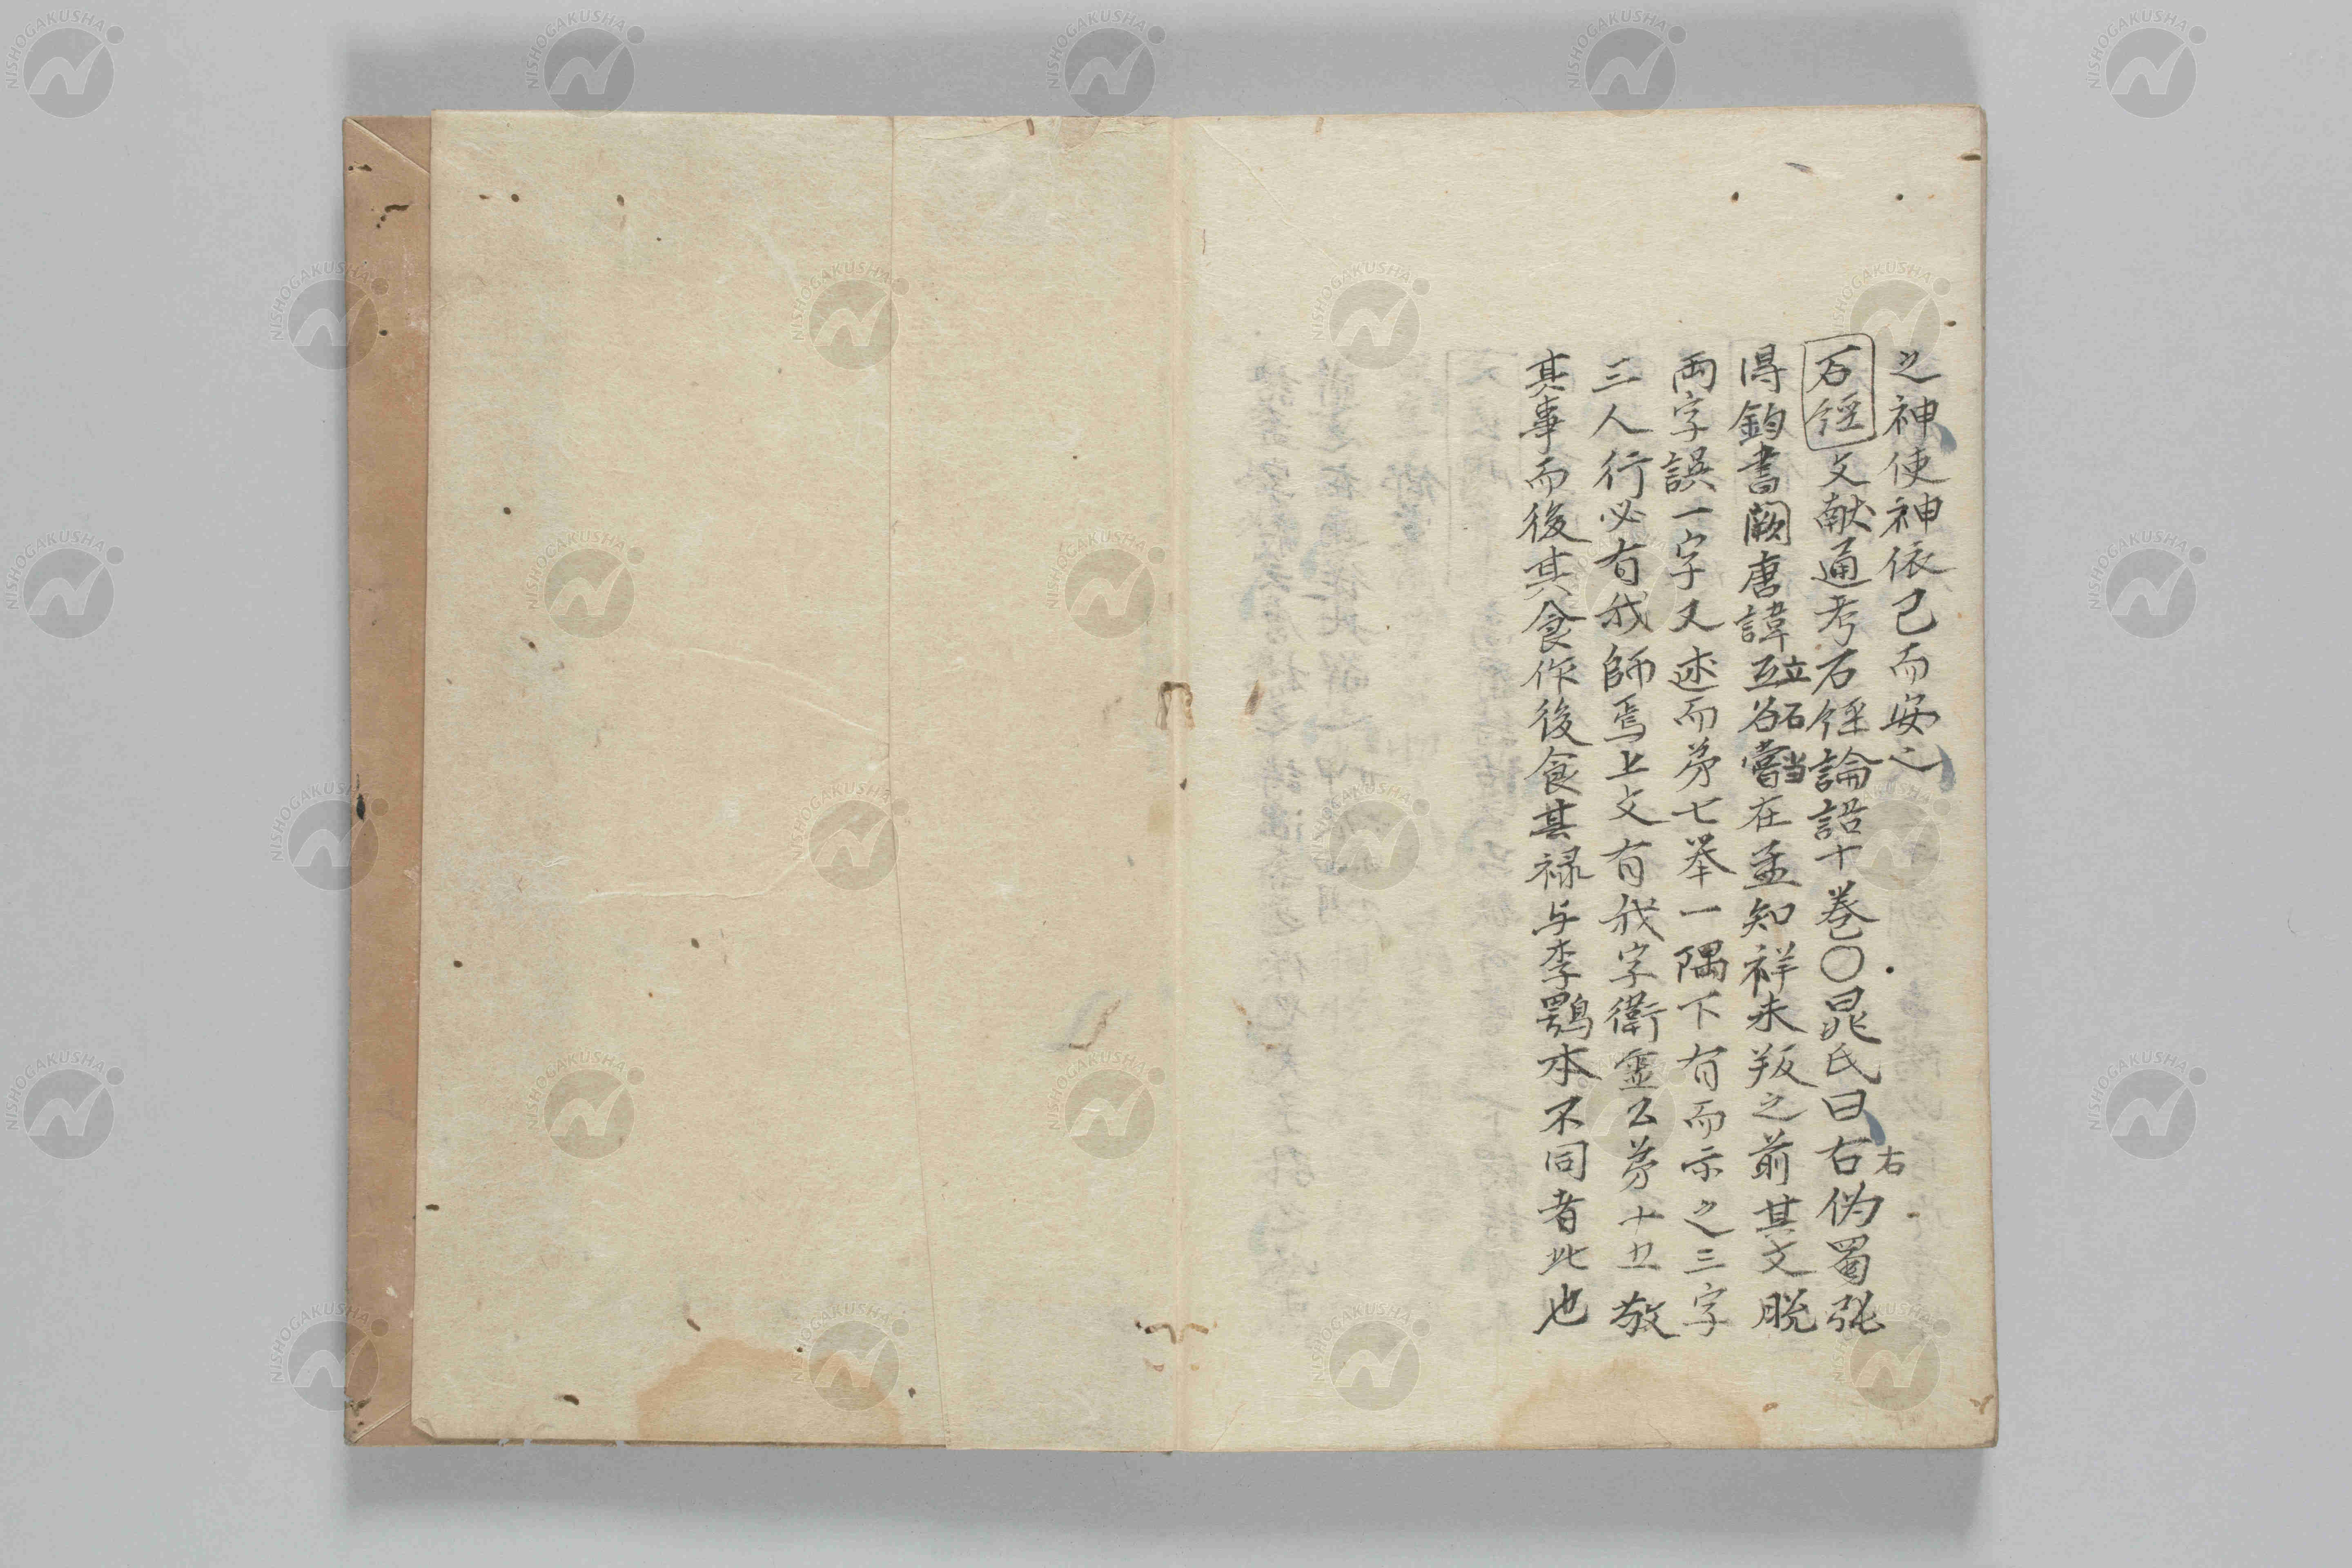 之神使神依己而安之
石経文献通考石経論語十巻〇晁氏曰右偽蜀張
右
得鈞書闕唐諱立石当在孟知祥未叛之前其文脱
両字誤一字又述而第七举一隅下有而示之三字
三人行必有我師焉上文有我字衛霊公第十五敬
其事而後其食作後食其禄与李鶚本不同者此也
NISHOGAKUSHA